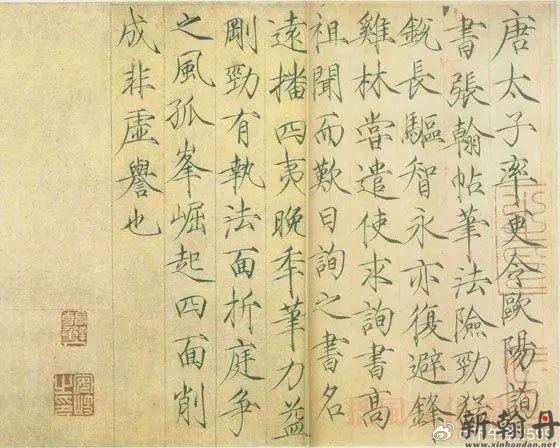 唐太子率更令歐陽詢
書張翰帖筆法險勁猛
銳長驅智永亦復避鋒
雞林嘗遣使求詢書高
祖聞而歎曰詢之書名
遠播四夷晚年筆力益
剛勁有執法面折庭爭
之風孤峯崛起四面削
成非虛譽也
新翰丹
www.xinhandan.net